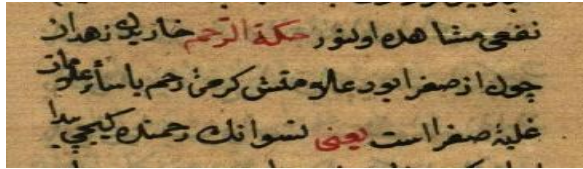 نفعی مشاهده اولنور حکة الرحم خاریدن زهدان
چون از صفرا بود علامتش کرمئ رحم باسائر علامات
غلبۀ صفرااست یعنی نسوانك رحمنده کیجی پیدا